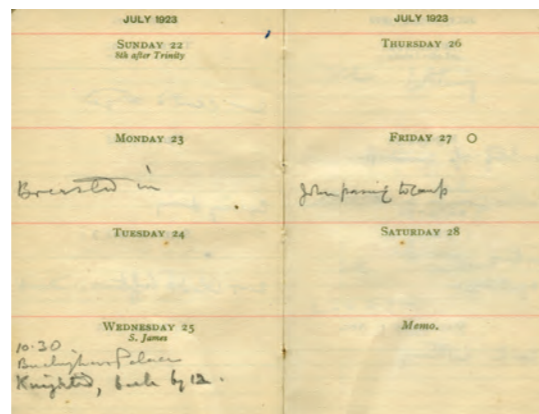 JULY 1923
SUNDAY 22
8th after Trinity
MONDAY 23
in
TUESDAY 24
WEDNESDAY 25
S. James
10.30
Buckingham Palace
Knighted, back by 12.
JULY 1923
THURSDAY 26
FRIDAY 27
John passing to camp
SATURDAY 28
Memo.